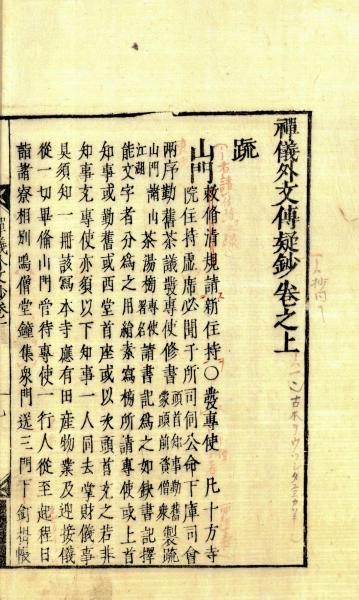 禪儀外文傳疑鈔卷之上
疏
山門
敕脩清規請新住持〇發專使凡十方寺
院住持虛席必聞于所司伺公命下庫司會
兩序勤舊茶議發專使修書頭首知事勤舊蒙頭前資僧衆製疏
山門諸山江湖茶湯榜專使署名請書記為之如缺書記擇
能文字者分為之用絵素寫榜所請專使或上首
知事或勤舊或西堂首座或以次頭首充之若非
知事充專使亦須以下知事一人同去掌財儀事
具須知一冊該寫本寺應有田産物業及迎接儀
從一切畢備山門管待專使一行人從至起程日
詣諸寮相別鳴僧堂鐘集衆門送三門下釘掛帳